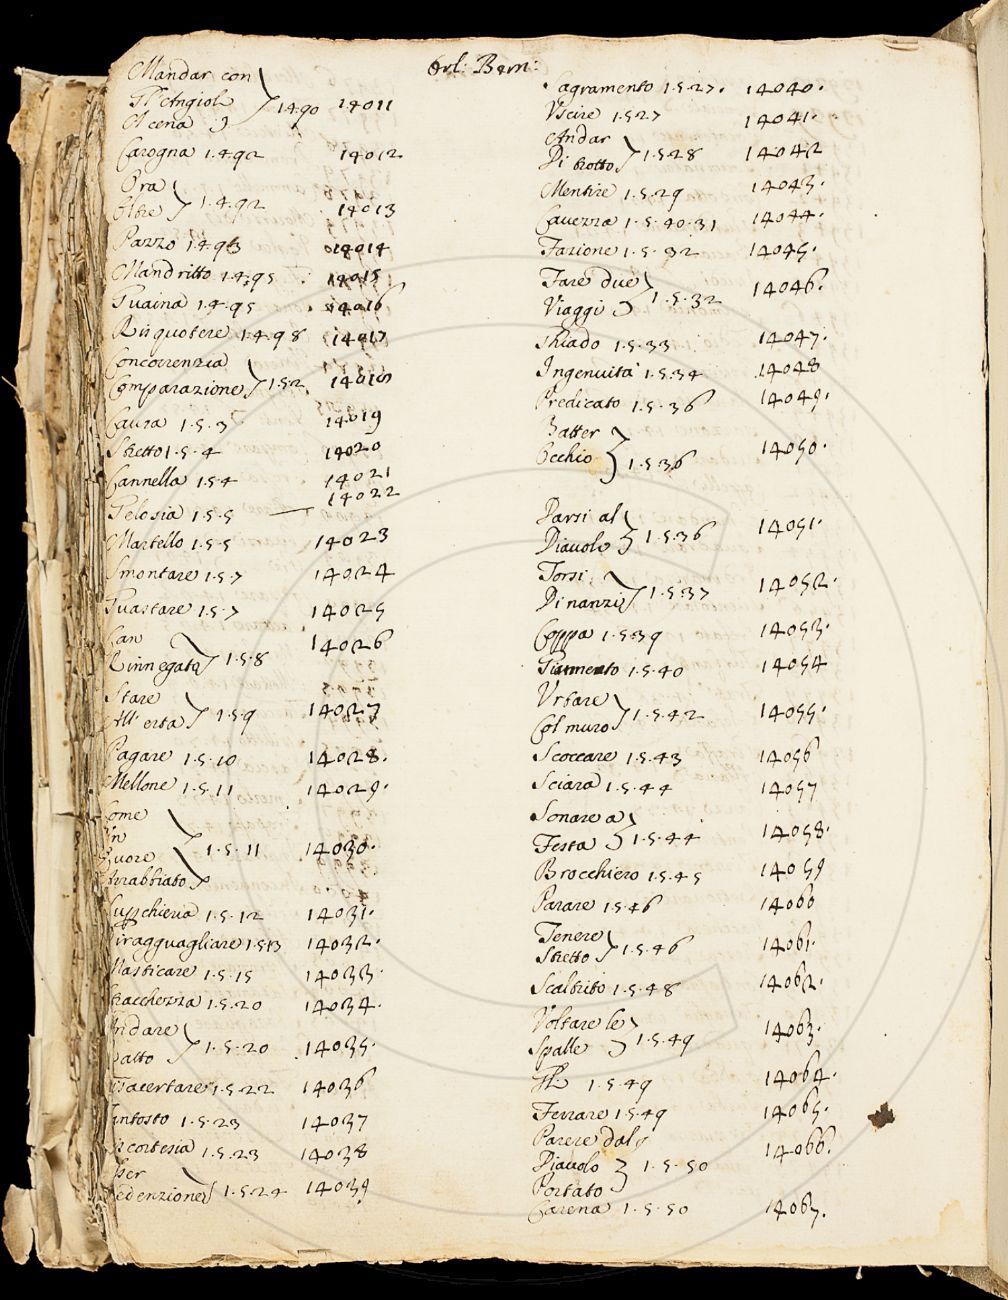 Orl: Bern:
Mandar con
Gl'Angioli
A cena } 1.4.90 14011
Carogna 1.4.92 14012
Ora
Oltre } 1.4.92 14013
Pazzo 1.4.93 14014
Mandritto 1.4.95 14015
Guaina 1.4.95 14016
Risquotere 1.4.98 14017
Concorrenzia
Comparazione } 1.5.2 14018
Caura 1.5.3 14019
Stretto 1.5.4 14020
Cannella 1.5.4 14021
14022
Gelosia 1.5.5
Martello 1.5.5 14023
Smontare 1.5.7 14024
Guastare 1.5.7 14025
Can
Rinnegato } 1.5.8 14026
Stare
All'erta } 1.5.9 14027
Pagare 1.5.10 14028.
Mellone 1.5.11 14029.
Come
Un
Cuore
Arrabbiato } 1.5.11 14030.
Supchieria 1.5.12 14031.
Ragguagliare 1.5.13 14032.
Masticare 1.5.15 14033.
Stracchezza 1.5.20 14034.
Andare
Ratto } 1.5.20 14035.
1.5.22 14036
Tantosto 1.5.23 14037
Scortesia 1.5.23 14038
Per
Redenzione } 1.5.24 14039
Sagramento 1.5.27. 14040.
Uscire 1.5.27 14041.
Andar
Di trotto } 1.5.28 14042
Mentire 1.5.29 14043.
Cavezza 1.5.40.31 14044.
Fazione 1.5.32 14045.
Fare due
Viaggi } 1.5.32 14046.
Schiado 1.5.33 14047.
Ingenuità 1.5.34 14048
Predicato 1.5.36 14049.
Batter
Occhio } 1.5.36 14050.
Darsi al
Diavolo } 1.5.36 14051.
Torsi
Dinanzi } 1.5.37 14052.
Coppa 1.5.39 14053.
Giarmento 1.5.40 14054
Urtare
Col muro } 1.5.42 14055.
Scoccare 1.5.43 14056
Sciarra 1.5.44 14057
Sonare a
Festa } 1.5.44 14058.
Brocchiero 1.5.45 14059
Parare 1.5.46 14060
Tenere
Stretto } 1.5.46 14061.
Scaltrito 1.5.48 14062.
Voltare le
Spalle } 1.5.49 14063.
1.5.49 14064.
Ferrare 1.5.49 14065.
Parere dal
Diavolo
Portato } 1.5.50 14066.
Carena 1.5.50 14067.